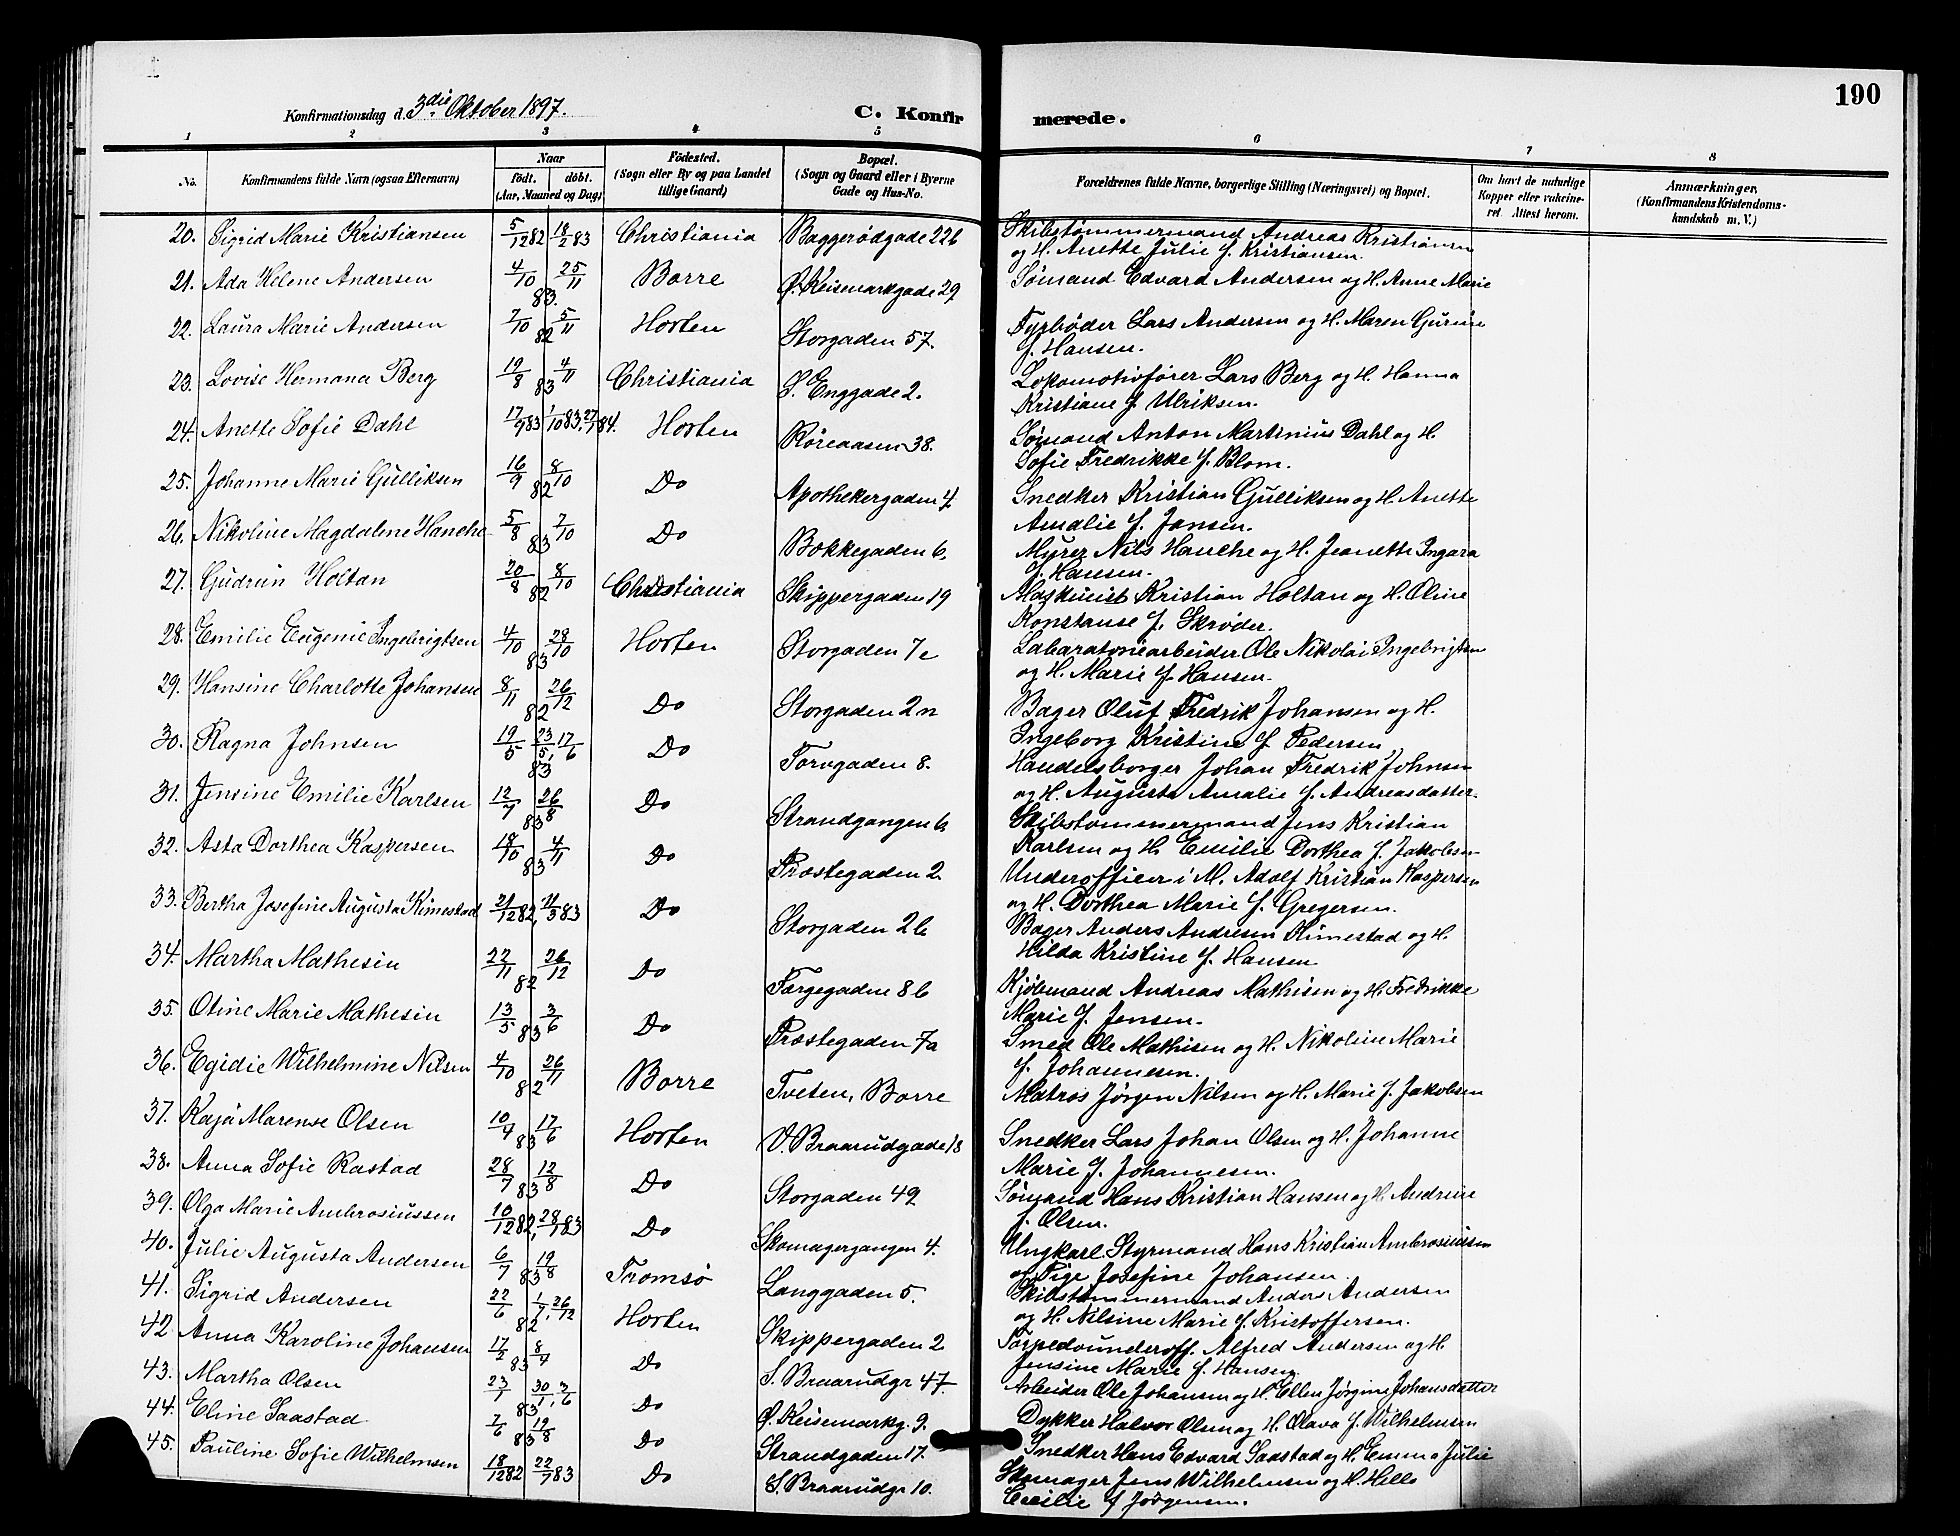 190
Konfirmationsdag d. 3die Oktober 1897.
C. Konfirmerede.
1 2 3 4 5 6 7 8
No. Konfirmandens fulde Navn (ogsaa Efternavn) Naar födt. döbt. (Aar, Maaned og Dag) Födested. (Sogn eller By og paa Landet tillige Gaard) Bopæl. (Sogn og Gaard eller i Byerne Gade og Hus-No. Forældrenes fulde Navne, borgerlige Stilling (Næringsvei) og Bopæl. Om havt de naturlige Kopper eller vakcineret. Attest herom. Anmærkninger. (Konfirmandens Kristendomskundskab m. V.)
20. Sigrid Marie Kristiansen 5/12 82 18/2 83 Christiania Baggerødgade 22b Skibstømmermand Andreas Kristiansen
og H. Anette Julie f. Kristiansen.
21. Ada Helene Andersen 4/10 25/11 83. Borre Ø. Keisemarkgade 29 Sømand Edvard Andersen og H. Anne Marie
22. Laura Marie Andersen 7/10 5/11 82 Horten Storgaden 57. Fyrbøder Lars Andersen og H. Maren Gurine
f. Hansen.
23. Lovise Hermana Berg 19/8 4/11 83 Christiania S. Enggade 2. Lokomotivfører Lars Berg og H. Hanna
Kristiane f. Ulriksen.
24. Anette Sofie Dahl 17/9 83 1/10 83, 27/1 84. Horten Røreaasen 38. Sømand Anton Martinius Dahl og H.
Sofie Fredrikke f. Blom.
25. Johanne Marie Gulliksen 16/9 8/10 82 Do Apothekergaden 4. Snedker Kristian Gulliksen og H. Anette
Amalie f. Jansen.
26. Nikoline Magdalene Hanche 5/8 7/10 83 Do Bokkegaden 6. Myrer Nils Hanche og H. Jeanette Ingara
f. Hansen.
27. Gudrun Holtan 20/8 8/10 82 Christiania Skippergaden 19 Maskinist Kristian Holtan og H. Oline
Konstanse f. Skrøder.
28. Emilie Eugenie Ingebrigtsen 4/10 28/10 83 Horten Storgaden 7c Labaratoriearbeider Ole Nikolai Ingebrigtsen
og H. Marie f. Hansen.
29. Hansine Charlotte Johansen 8/11 26/12 82 Do Storgaden 2n Bager Oluf Fredrik Johansen og H.
Ingeborg Kristine f. Pedersen
30. Ragna Johnsen 19/5 23/5, 17/6 83 Do Torvgaden 8. Handelsborger Johan Fredrik Johnsen
og H. Augusta Amalie f. Andreasdatter.
31. Jensine Emilie Karlsen 12/7 26/8 83 Do Strandgangen 6 Skibstømmermand Jens Kristian
Karlsen og H. Emilie Dorthea f. Jakobsen
32. Asta Dorthea Kaspersen 18/10 4/11 83 Do Præstegaden 2 Underofficer i M. Adolf Kristian Kaspersen
og H. Dorthea Marie f. Gregersen.
33. Bertha Josefine Augusta Kimestad 21/12 82, 11/3 83 Do Storgaden 26 Bager Anders Andresen Kimestad og H.
Hilda Kristine f. Hansen
34. Martha Mathesin 22/11 26/12 82 Do Færgegaden 8b Kjøbmand Andreas Mathisen og H. Fredrikke
Marie f. Jensen.
35. Otine Marie Mathesin 13/5 3/6 83 Do Præstegaden 7a Smed Ole Mathisen og H. Nikoline Marie
f. Johannesen.
36. Egidie Wilhelmine Nilsen 4/10 26/11 82 Borre Tveten, Borre Matros Jørgen Nilsen og H. Marie f. Jakobsen
37. Kaja Marense Olsen 10/4 17/6 83 Horten V. Braarudgade 13 Snedker Lars Johan Olsen og H. Johanne
Marie f. Johannesen.
38. Anna Sofie Rastad 28/7 12/8 83 Do Storgaden 49 Sømand Hans Kristian Hansen og H. Andrine
f. Olsen.
39. Olga Marie Ambrosiussen 10/12 82, 28/1 83 Do Skomagergangen 4. Ungkarl. Styrmand Hans Kristian Ambrosiussen
og Pige Josefine Johansen.
40. Julie Augusta Andersen 6/7 19/8 83 Tromsø Langgaden 5. Skibstømmermand Anders Andersen
og H. Nilsine Marie f. Kristoffersen.
41. Sigrid Andersen 22/6 1/7, 26/12 82 Horten Skippergaden 2 Torpedounderoff. Alfred Andersen og H.
Jensine Marie f. Hansen
42. Anna Karoline Johansen 17/2 8/4 83 Do S. Braarudgr 47. Arbeider Ole Johansen og H. Ellen Jørgine Johansdatter
43. Martha Olsen 23/1 30/1, 3/6 83 Do Ø. Keisemarkg. 9. Dykker Halvor Olsen og H. Olava f. Wilhelmsen
44. Eline Saastad 7/6 19/8 83 Do Strandgaden 17. Snedker Hans Edvard Saastad og H. Emma Julie
45. Pauline Sofie Wilhelmsen 18/12 82 22/7 83 Do S. Braarudgr 10. Skomager Jens Wilhelmsen og H. Helle
Cecilie f Jørgensen.